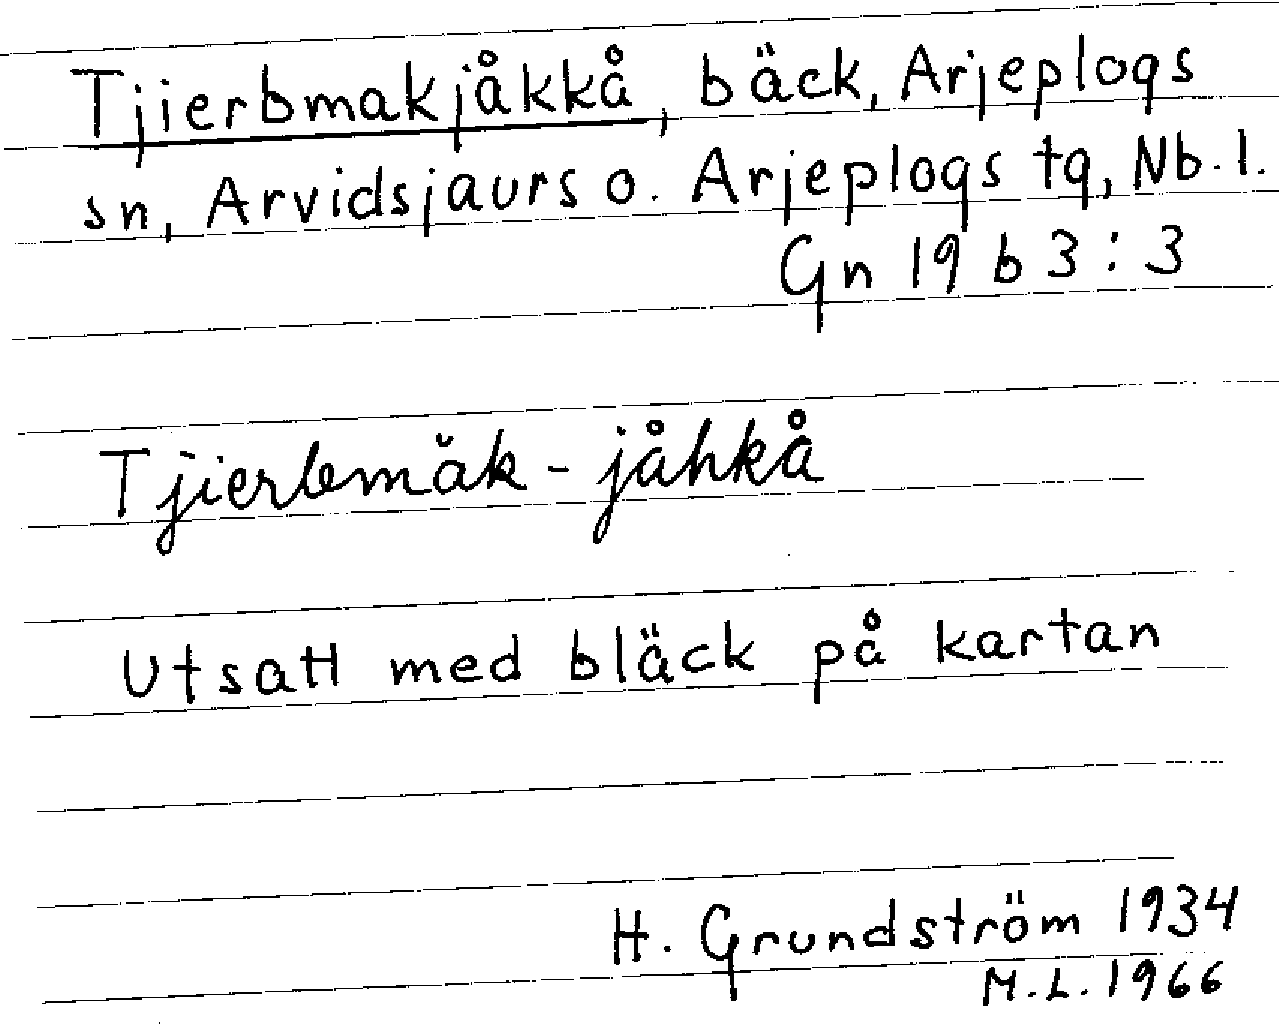 Tjierbmakjåkkå, bäck, Arjeplogs
sn, Arvidsjaurs o. Arjeplogs tg, Nb. l.
Gn 19 b 3 : 3
Tjierbmăk - jåhkå
Utsatt med bläck på kartan
H. Grundström 1934
M.L. 1966